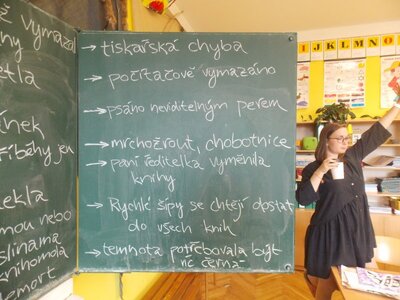 vymazal
ny
etla
ínek
říběhy jen
ekla
mou nebo
slinama
knihomola
zmort
→ tiskařská chyba
→ počítačově vymazáno
→ psáno neviditelným perem
→ mrchožrout, chobotnice
→ paní ředitelka vyměnila
knihy
→ Rychlé šípy se chtějí dostat
do všech knih
→ temnota potřebovala být
víc černá
I J K L M N O